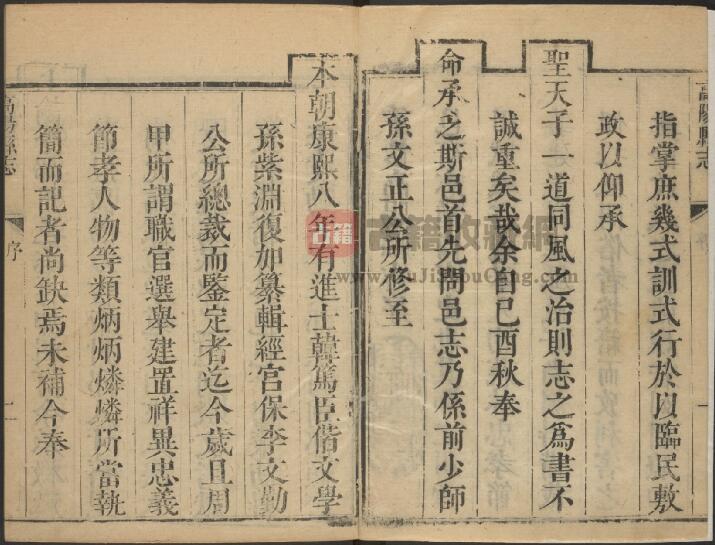 高陽縣志
指掌庶幾式訓式行於以臨民敷
政以仰承
聖天子一道同風之治則志之為書不
誠重矣哉余自己酉秋奉
命承乏斯邑首先問邑志乃係前少師
孫文正公所修至
本朝康熙八年有進士韓篤臣偕文學
孫紫淵復加纂輯經宮保李文勤
公所總裁而鑒定者迄今歲且周
甲所謂職官選舉建置祥異忠義
節孝人物等類炳炳燐燐所當執
簡而記者尚缺焉未補今奉
高陽縣志
序
古籍
古籍收藏網
www.GuJiShouCang.com